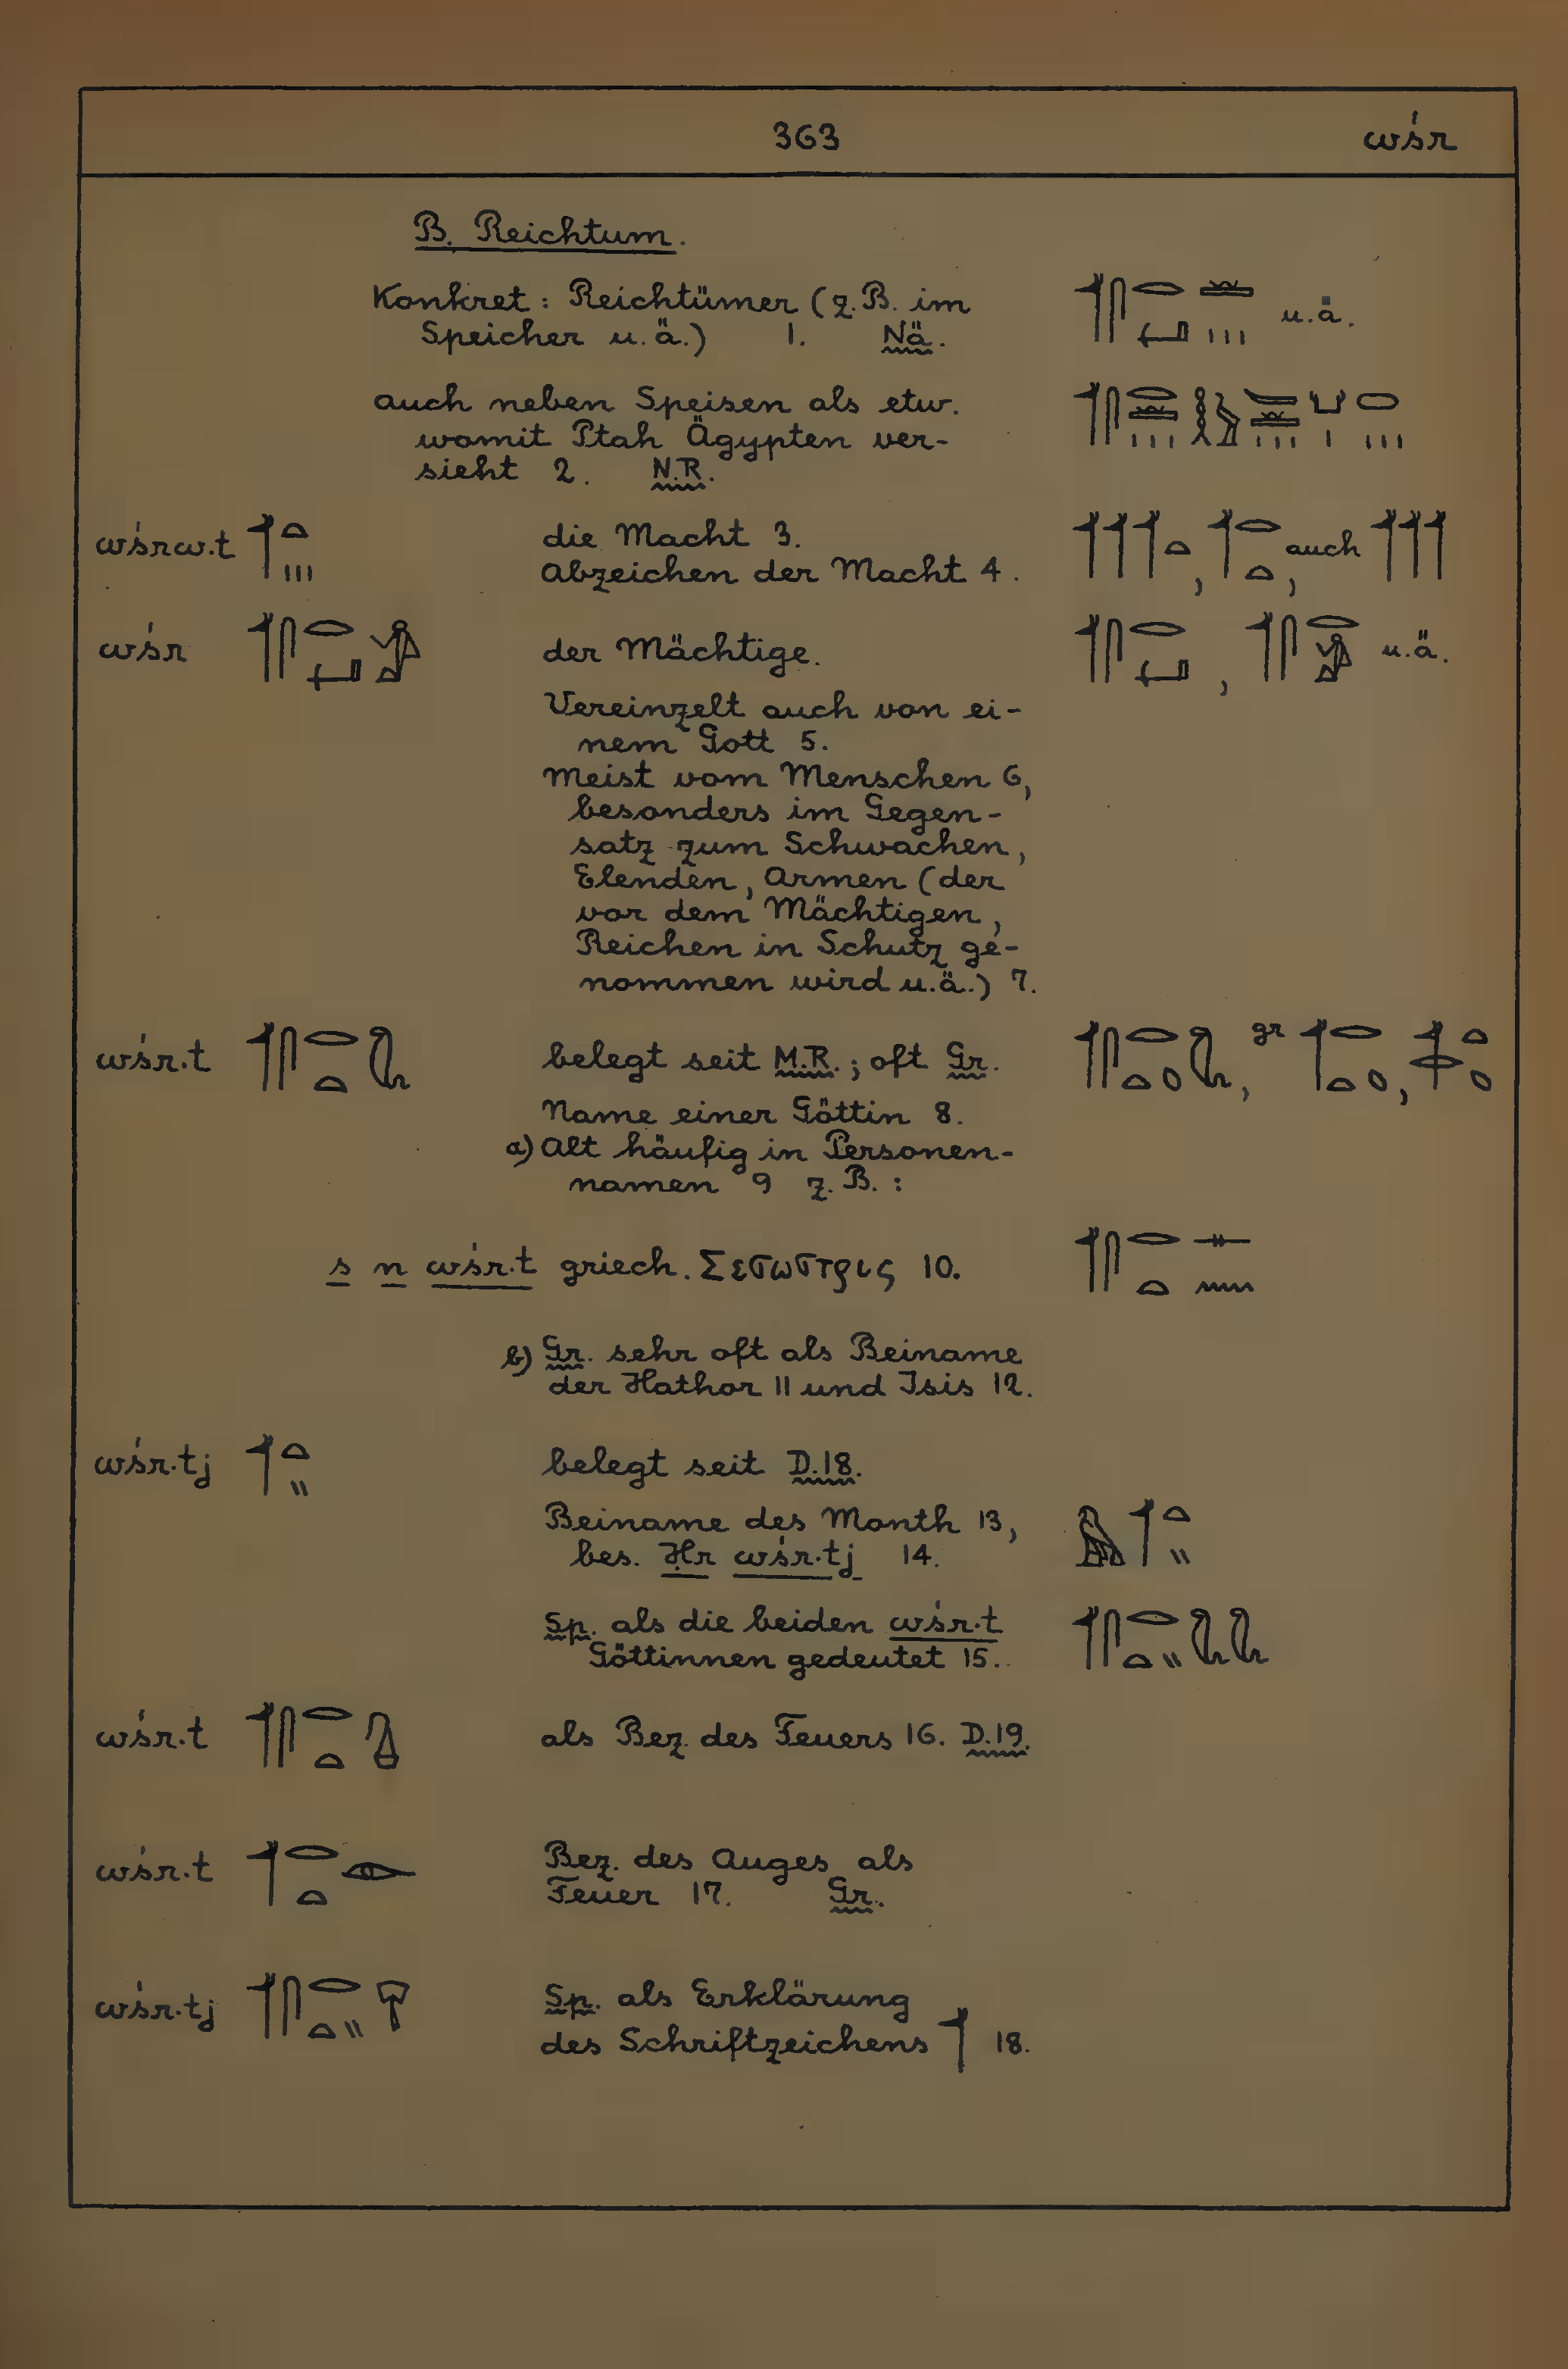 363 wśr
B. Reichtum.
Konkret: Reichtümer (z.B. im
Speicher u.ä.) 1. Nä. u.ä.
auch neben Speisen als etw.
womit Ptah Ägypten ver-
sieht 2. N.R.
wśrw.t die Macht 3.
Abzeichen der Macht 4. , , auch
wśr der Mächtige. , u.ä.
Vereinzelt auch von ei-
nem Gott 5.
Meist vom Menschen 6,
besonders im Gegen-
satz zum Schwachen,
Elenden, Armen (der
vor dem Mächtigen,
Reichen in Schutz ge-
nommen wird u.ä.) 7.
wśr.t belegt seit M.R.; oft Gr. , gr ,
Name einer Göttin 8.
a) Alt häufig in Personen-
namen 9 z.B.:
s n wśr.t griech. Σεσωστρις 10.
b) Gr. sehr oft als Beiname
der Hathor 11 und Isis 12.
wśr.tj belegt seit D.18.
Beiname des Month 13,
bes. Ḥr wśr.tj 14.
Sp. als die beiden wśr.t
Göttinnen gedeutet 15.
wśr.t als Bez. des Feuers 16. D.19.
wśr.t Bez. des Auges als
Feuer 17. Gr.
wśr.tj Sp. als Erklärung
des Schriftzeichens 18.